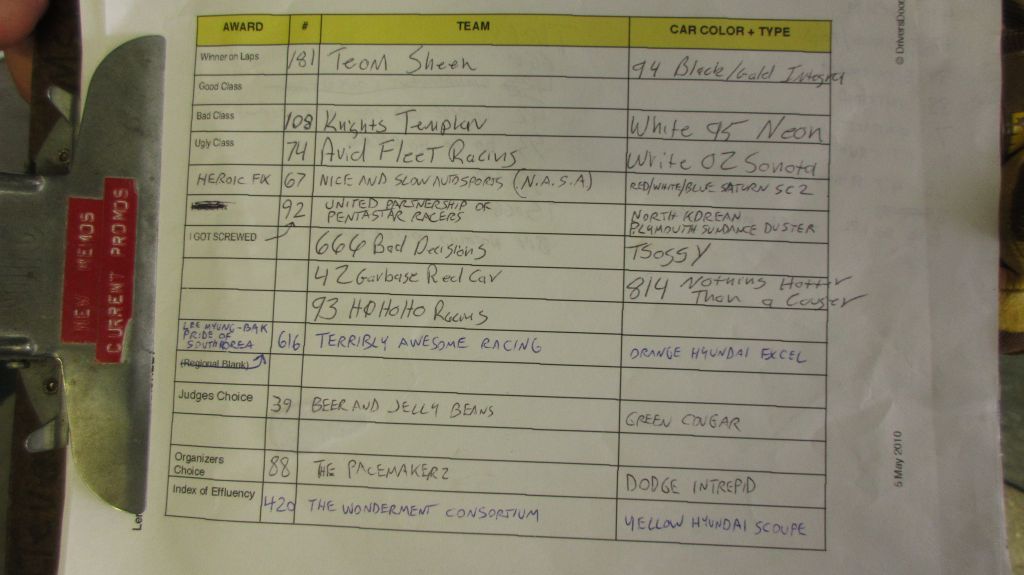 AWARD # TEAM CAR COLOR + TYPE
Winner on Laps 181 Team Sheen 94 Black/Gold Integra
Good Class
Bad Class 108 Knights Templar White 95 Neon
Ugly Class 74 Avid Fleet Racing White 02 Sonota
HEROIC FIX 67 NICE AND SLOW AUTOSPORTS (N.A.S.A) RED/WHITE/BLUE SATURN SC2
92 UNITED PARTNERSHIP OF
PENTASTAR RACERS
NORTH KOREAN
PLYMOUTH SUNDANCE DUSTER
I GOT SCREWED 666 Bad Decisions TSOGGY
42 Garbage Red Car 814 Nothing Hotter
Than a Couger
93 HOHOHO Racing
LEE MYUNG-BAK
PRIDE OF
SOUTH KOREA
616 TERRIBLY AWESOME RACING ORANGE HYUNDAI EXCEL
(Regional Blank)
Judges Choice 39 BEER AND JELLY BEANS GREEN COUGAR
Organizers
Choice
88 THE PACEMAKERZ DODGE INTREPID
Index of Effluency 420 THE WONDERMENT CONSORTIUM YELLOW HYUNDAI SCOUPE
NEW MEMOS
CURRENT PROMOS
5 May 2010